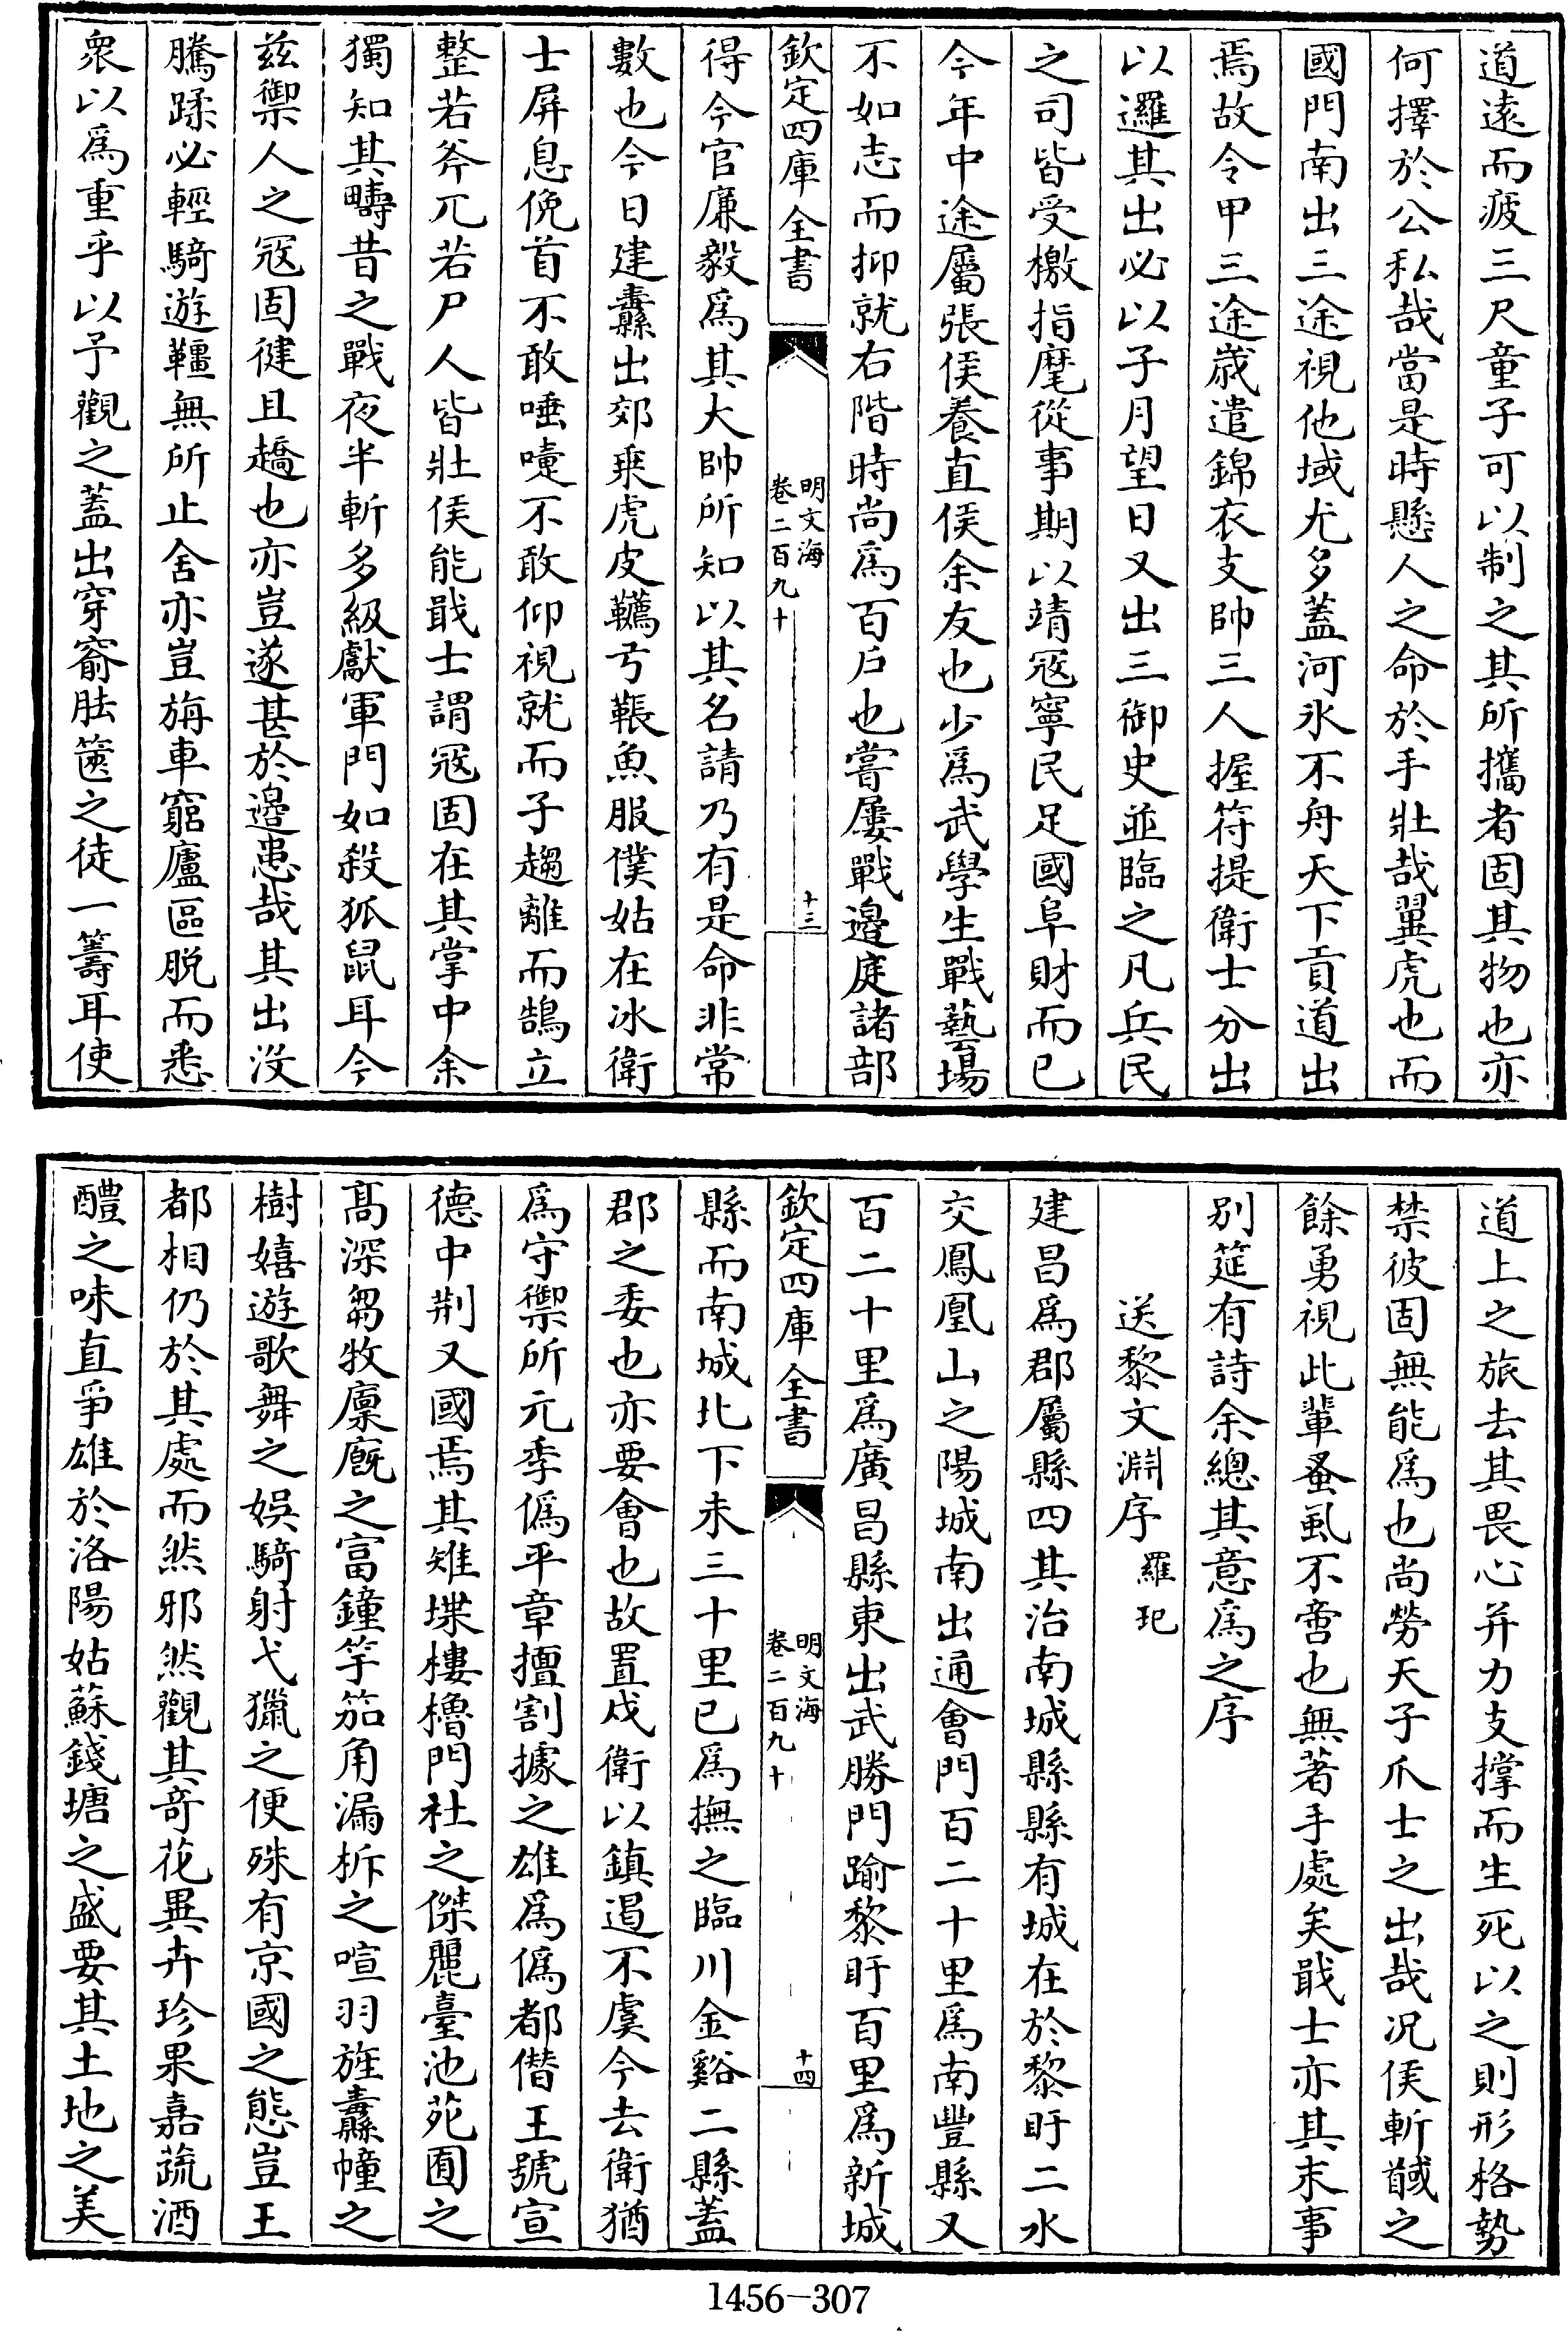 道遠而疲三尺童子可以制之其所攜者固其物也亦
何擇於公私哉當是時懸人之命於手壯哉翼虎也而
國門南出三途視他域尤多蓋河氷不舟天下貢道出
焉故令甲三途歲遣錦衣支帥三人握符提衛士分出
以邏其出必以子月望日又出三御史並臨之凡兵民
之司皆受檄指麾從事期以靖冦寧民足國阜財而已
今年中途屬張侯養直侯余友也少為武學生戰藝場
不如志而抑就右階時尚為百戶也嘗屢戰邉庭諸部
欽定四庫全書
明文海
卷二百九十
十三
得今官廉毅為其大帥所知以其名請乃有是命非常
數也今日建纛出郊乗虎皮韉弓韔魚服僕姑在冰衛
士屏息俛首不敢唾嚏不敢仰視就而子趨離而鵠立
整若斧兀若尸人皆壯侯能戢士謂冦固在其掌中余
獨知其疇昔之戰夜半斬多級獻軍門如殺狐鼠耳今
兹禦人之冦固徤且趫也亦豈遂甚於邉患哉其出沒
騰蹂必輕騎遊韁無所止舍亦豈旃車窮廬區脱而悉
衆以為重乎以予觀之蓋出穿窬胠篋之徒一籌耳使
道上之旅去其畏心并力支撐而生死以之則形格勢
禁彼固無能為也尚勞天子爪士之出哉况侯斬馘之
餘勇視此輩蚤虱不啻也無著手處矣戢士亦其末事
别筵有詩余總其意為之序
送黎文淵序 羅玘
建昌為郡屬縣四其治南城縣縣有城在於黎盱二水
交鳳凰山之陽城南出通會門百二十里為南豐縣又
百二十里為廣昌縣東出武勝門踰黎盱百里為新城
欽定四庫全書
明文海
卷二百九十
十四
縣而南城北下未三十里已為撫之臨川金谿二縣蓋
郡之委也亦要會也故置戍衛以鎮遏不虞今去衛猶
為守禦所元季偽平章擅割據之雄為偽都僭王號宣
德中荆又國焉其雉堞樓櫓門社之傑麗臺池苑囿之
髙深芻牧廩廐之富鐘竽笳角漏柝之喧羽旌纛幢之
樹嬉遊歌舞之娱騎射弋獵之便殊有京國之態豈王
都相仍於其處而然邪然觀其竒花異卉珍果嘉蔬酒
醴之味直爭雄於洛陽姑蘇錢塘之盛要其土地之美
1456-307